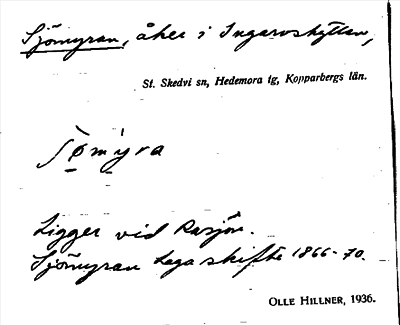 Sjömyran, åker i Ingarvshyttan,
St. Skedvi sn, Hedemora tg, Kopparbergs län.
sømyra
Ligger vid Rasjön.
Sjömyran Laga skifte 1866-70.
OLLE HILLNER, 1936.